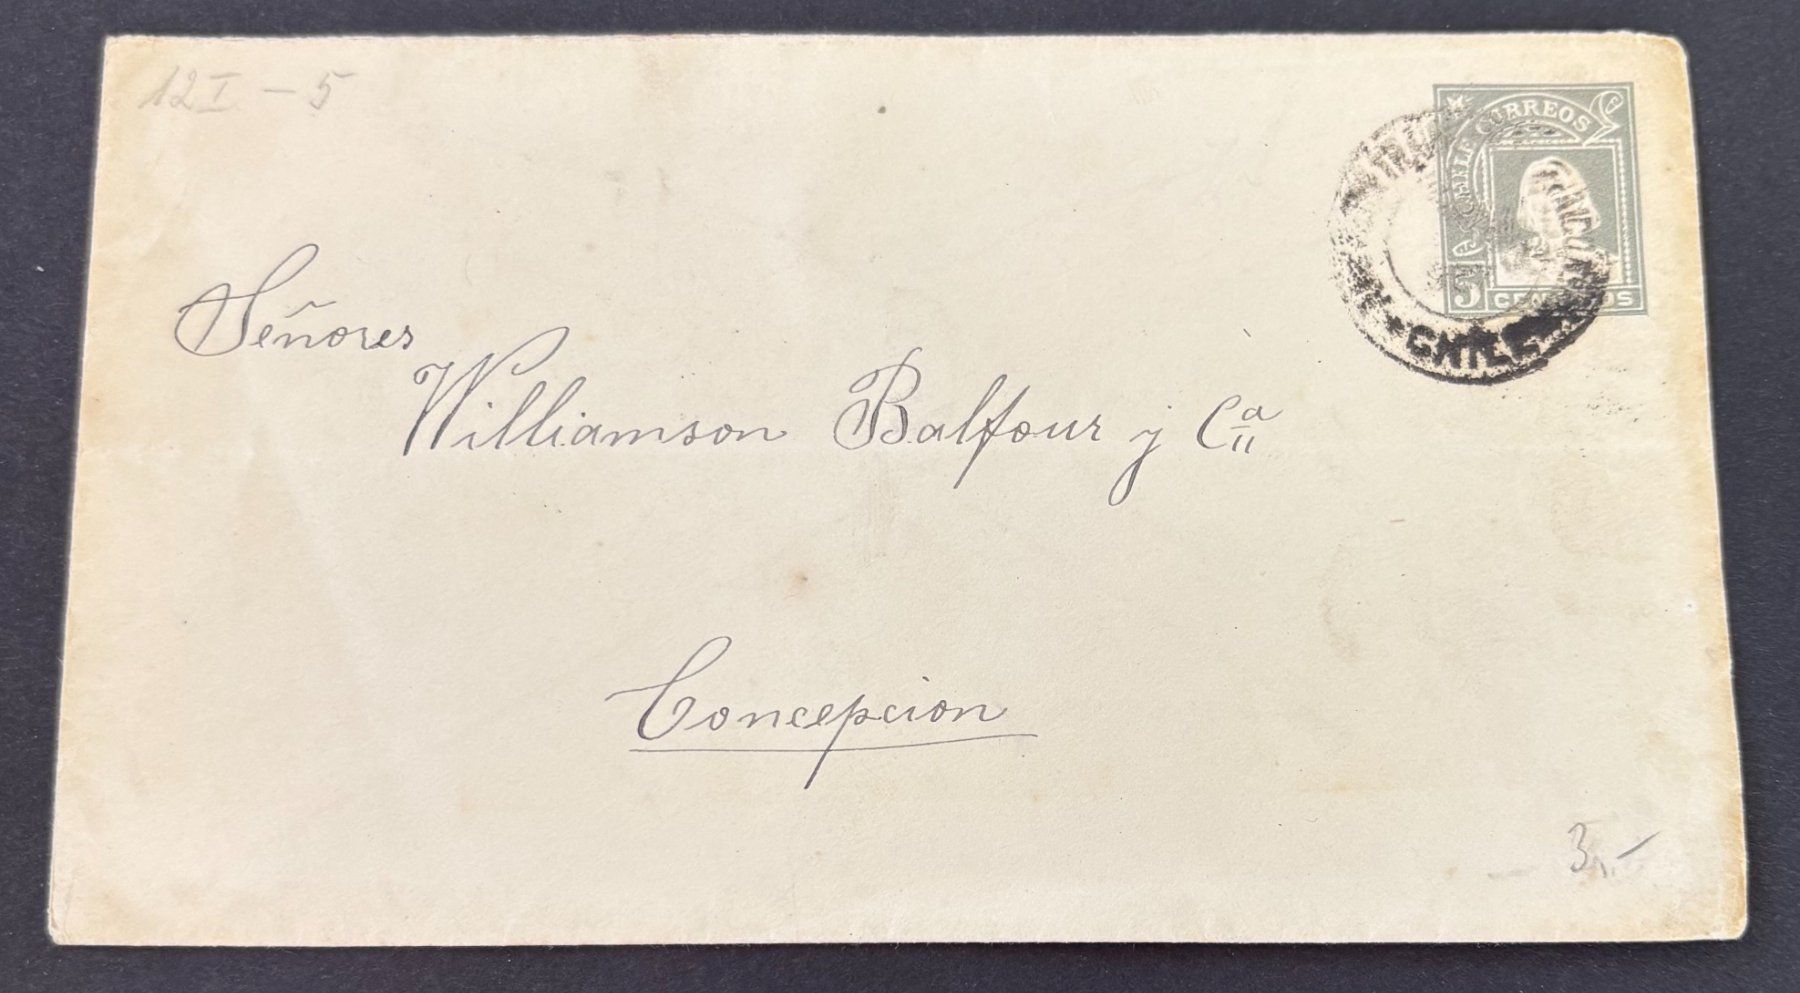 12 I - 5
CHILE CORREOS
5 CENTAVOS
CHILE
Señores
Williamson Balfour y Cª
Concepcion
3.-